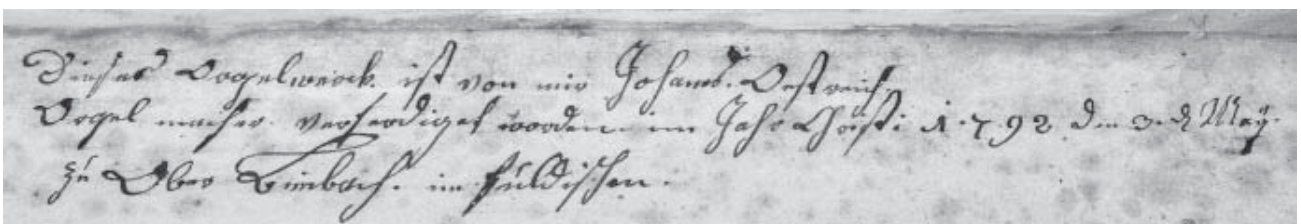 Dieses Orgelwerck. ist von mir Johanes. Oestreich.
Orgel macher. verferdiget worden. im Jahr Christi 1792 den 3. May.
zu Ober Bimbach. im fuldischen.